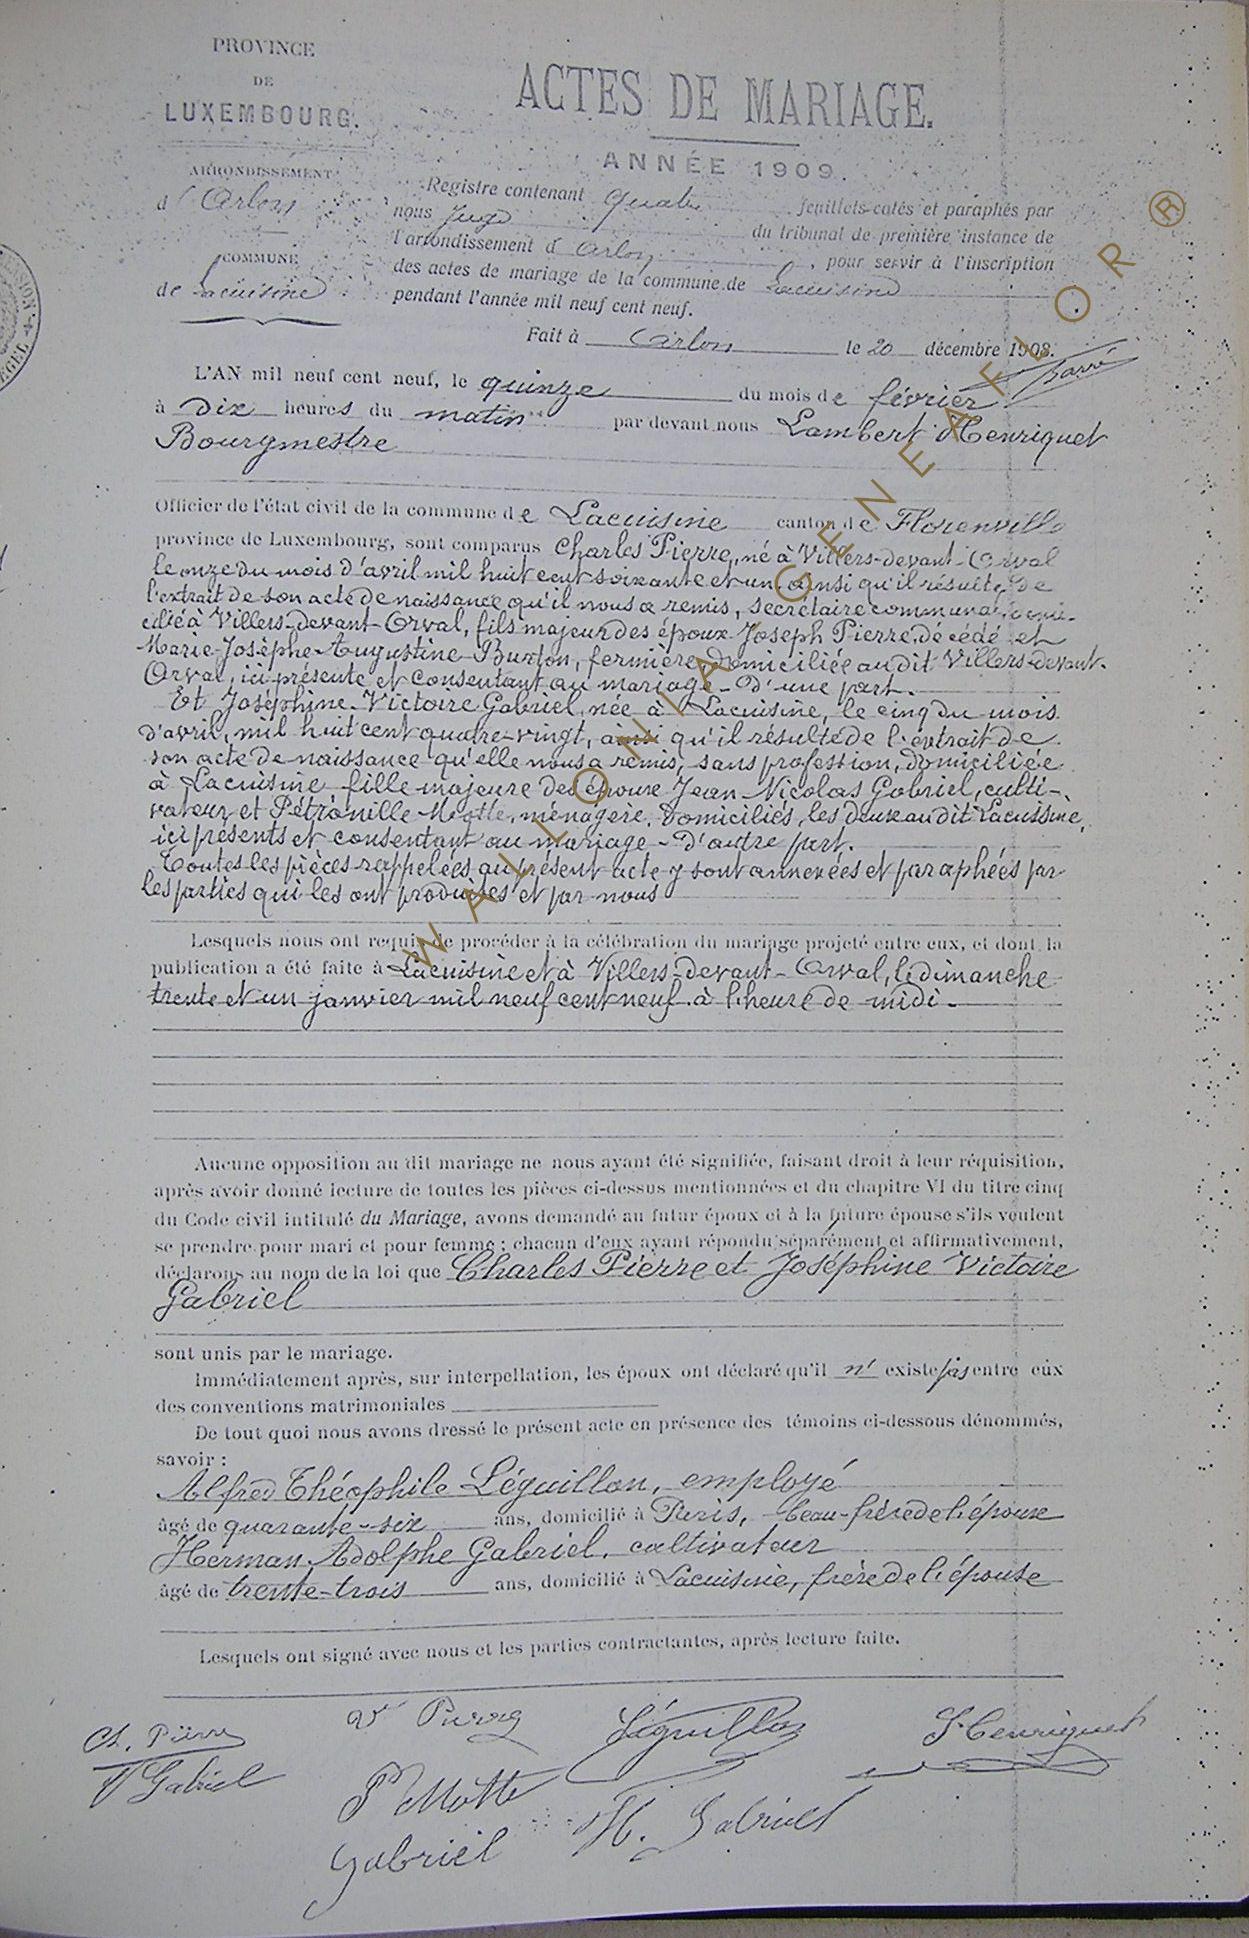 PROVINCE
DE
LUXEMBOURG.
ARRONDISSEMENT
d'Arlon
COMMUNE
de Lacuisine
ACTES DE MARIAGE.
ANNÉE 1909.
Registre contenant quatre feuillets cotés et paraphés par
nous Juge du tribunal de première instance de
l'arrondissement d'Arlon, pour servir à l'inscription
des actes de mariage de la commune de Lacuisine
pendant l'année mil neuf cent neuf.
Fait à Arlon le 20 décembre 1908.
L'AN mil neuf cent neuf, le quinze du mois de février
à Dix heures du matin par devant nous Lambert Henriquet
Bourgmestre
Officier de l'état civil de la commune de Lacuisine canton de Florenville
province de Luxembourg, sont comparus Charles Pierre, né à Villers-devant-Orval
le onze du mois d'avril mil huit cent soixante et un, ainsi qu'il résulte de
l'extrait de son acte de naissance qu'il nous a remis, secrétaire communal, domi-
cilié à Villers-devant-Orval, fils majeur des époux Joseph Pierre, décédé et
Marie-Josèphe-Augustine Burton, fermière, domiciliée au dit Villers-devant-
Orval, ici présente et consentant au mariage - D'une part.
Et Joséphine-Victoire Gabriel, née à Lacuisine, le cinq du mois
d'avril, mil huit cent quatre-vingt, ainsi qu'il résulte de l'extrait de
son acte de naissance qu'elle nous a remis, sans profession, domiciliée
à Lacuisine fille majeure des époux Jean-Nicolas Gabriel, culti-
vateur et Pétronille Motte, ménagère, domiciliés, les deux au dit Lacuisine,
ici présents et consentant au mariage - D'autre part.
Toutes les pièces rappelées au présent acte y sont annexées et paraphées par
les parties qui les ont produites et par nous
Lesquels nous ont requis de procéder à la célébration du mariage projeté entre eux, et dont la
publication a été faite à Lacuisine et à Villers-devant-Orval, le dimanche
trente et un janvier mil neuf cent neuf à l'heure de midi -
Aucune opposition au dit mariage ne nous ayant été signifiée, faisant droit à leur réquisition,
après avoir donné lecture de toutes les pièces ci-dessus mentionnées et du chapitre VI du titre cinq
du Code civil intitulé du Mariage, avons demandé au futur époux et à la future épouse s'ils veulent
se prendre pour mari et pour femme ; chacun d'eux ayant répondu séparément et affirmativement,
déclarons au nom de la loi que Charles Pierre et Joséphine Victoire
Gabriel
sont unis par le mariage.
Immédiatement après, sur interpellation, les époux ont déclaré qu'il n' existe pas entre eux
des conventions matrimoniales
De tout quoi nous avons dressé le présent acte en présence des témoins ci-dessous dénommés,
savoir :
Alfred Théophile Léguillon, employé
âgé de quarante-six ans, domicilié à Paris, beau-frère de l'épouse
Herman Adolphe Gabriel, cultivateur
âgé de trente-trois ans, domicilié à Lacuisine, frère de l'épouse
Lesquels ont signé avec nous et les parties contractantes, après lecture faite.
Ch. Pierre
V Gabriel
P Motte
Gabriel
Léguillon
H. Gabriel
L Henriquet
WALLONIA - GENEAFLOR ®